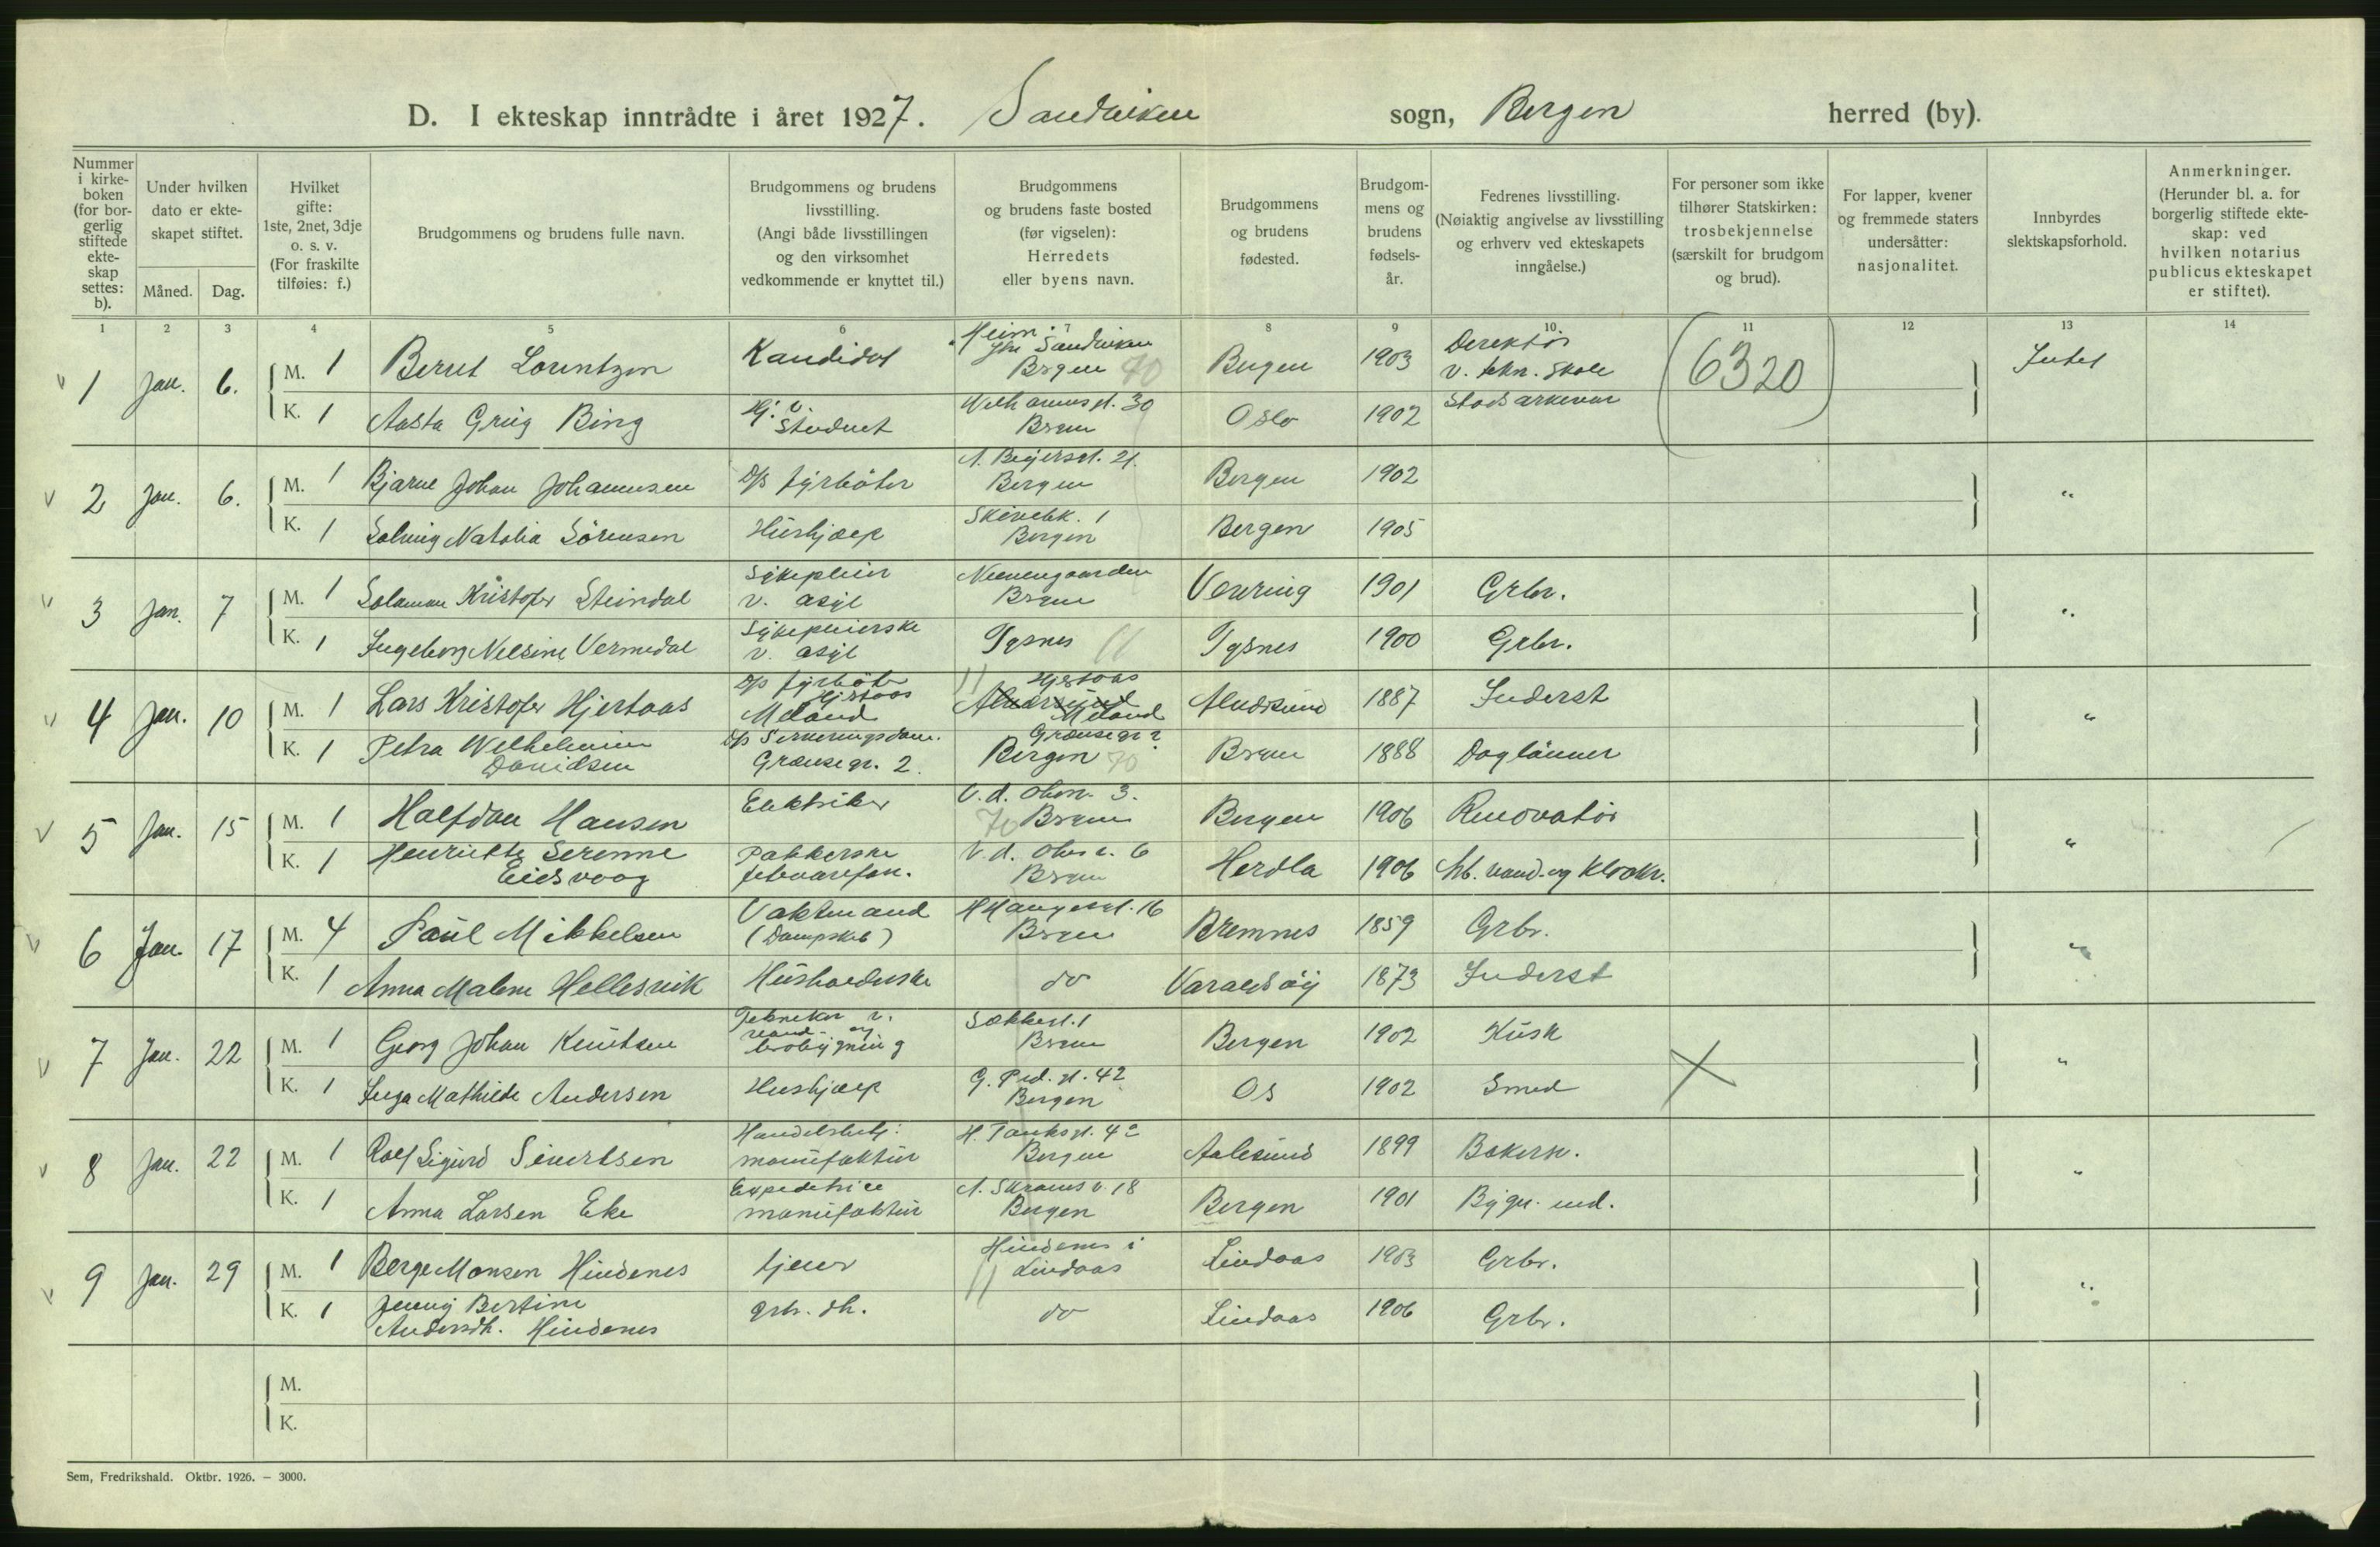 D. I ekteskap inntrådte i året 1927. Sandviken sogn, Bergen herred (by).
Nummer i kirkeboken (for borgerlig stiftede ekteskap settes: b).
Under hvilken dato er ekteskapet stiftet.
Måned. Dag.
Hvilket gifte: 1ste, 2net, 3dje o. s. v. (For fraskilte tilføies: f.)
Brudgommens og brudens fulle navn.
Brudgommens og brudens livsstilling. (Angi både livsstillingen og den virksomhet vedkommende er knyttet til.)
Brudgommens og brudens faste bosted (før vigselen): Herredets eller byens navn.
Brudgommens og brudens fødested.
Brudgommens og brudens fødselsår.
Fedrenes livsstilling. (Nøiaktig angivelse av livsstilling og erhverv ved ekteskapets inngåelse.)
For personer som ikke tilhører Statskirken: trosbekjennelse (særskilt for brudgom og brud).
For lapper, kvener og fremmede staters undersåtter: nasjonalitet.
Innbyrdes slektskapsforhold.
Anmerkninger. (Herunder bl. a. for borgerlig stiftede ekteskap: ved hvilken notarius publicus ekteskapet er stiftet).
1 2 3 4 5 6 7 8 9 10 11 12 13 14
1 Jan. 6. M. 1 Bernt Lorentzen Kandidat Sandviken Bergen 70 Bergen 1903 Direktör v. tekn. skole 6320 Intet
K. 1 Aasta Grieg Bing Student 30 Brgen Oslo 1902 Stadsarkivar
2 Jan. 6. M. 1 Bjarne Johan Johannesen D/s fyrböter 21. Bergen Bergen 1902 "
K. 1 Solveig Natalia Sörensen Hushjælp Skivebk. 1 Bergen Bergen 1905
3 Jan. 7 M. 1 Salamon Kristofer Steindal Sykepleier v. asyl Neevengaarden Brgen Vevring 1901 Grbr. "
K. 1 Ingeborg Nelsine Vermedal Sykepleierske v. asyl Tysnes 11 Tysnes 1900 Grbr.
4 Jan. 10 M. 1 Lars Kristofer Hjertaas D/s fyrböter Hjertaas Meland 11 Hjertaas Alversund Meland Alversund 1887 Inderst "
K. 1 Petra Wilhelmine Davidsen D/s Serveringsdame. Grænsegr. 2. Grænsegr. 2 Bergen 70 Brgen 1888 Daglönner
5 Jan. 15 M. 1 Halfdan Hansen Elektriker 3. 70 Brgen Bergen 1906 Renovatör "
K. 1 Henriette Serenne Eidsvaag Pakkerske 6 Brgen Herdla 1906 Arb. vand- og kloakv.
6 Jan. 17 M. 4 Paul Mikkelsen Vaktmand (Dampskib) 16 Brgen Bremnes 1859 Grbr. "
K. 1 Anna Malene Hellesvik Husholderske do Varaldsöy 1873 Inderst
7 Jan. 22 M. 1 Georg Johan Knutsen Tekniker v. vand- og brobygning 1 Brgen Bergen 1902 Kusk "
K. 1 Inga Mathilde Andersen Hushjælp 42 Bergen Os 1902 Smed
8 Jan. 22 M. 1 Rolf Sigurd Sivertsen Handelsbetj: manufaktur H. Tanksgt. 42 Bergen Aalesund 1899 Bakerm. "
K. 1 Anna Larsen Eke Expeditrice manufaktur A. Skrams v. 18 Bergen Bergen 1901 Bygn. ..d.
9 Jan. 29 M. 1 Berge Monsen Hindenes tjener Hindenes i Lindaas 11 Lindaas 1903 Grbr. "
K. 1 Jenny Bertine Andersdh. Hindenes grb. dh. do Lindaas 1906 Grbr.
M.
K.
Sem, Fredrikshald. Oktbr. 1926. – 3000.